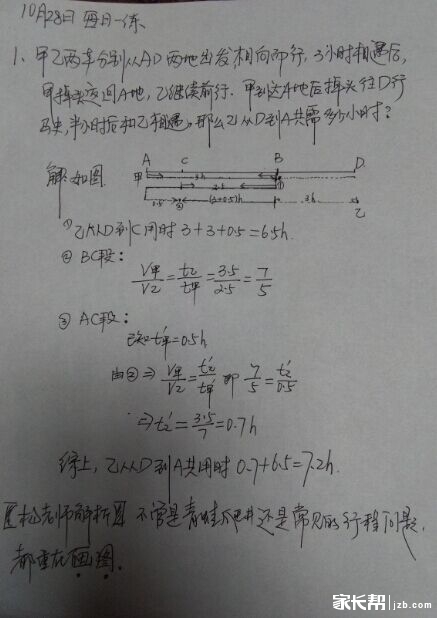 10月28日 每日一练
1、甲乙两车分别从AD两地出发,相向而行,3小时相遇后,
甲掉头返回A地,乙继续前行.甲到达A地后掉头往D行
驶,半小时后和乙相遇。那么乙从D到A共需多少小时?
解:如图.
A C B D
甲
3h
0.5 (3+0.5)h 3h
乙
①乙从D到C用时 3+3+0.5=6.5h.
② BC段:
V甲/V乙=t乙/t甲=3.5/2.5=7/5
③ AC段:
已知t甲'=0.5h
由②⇒ V甲/V乙=t乙'/t甲' 即 7/5=t乙'/0.5
⇒t乙'=3.5/7=0.7h
综上,乙从D到A共用时 0.7+6.5=7.2h.
【松老师解析】 不管是青蛙爬井还是常见的行程问题,
都重在画图.
家长帮 jzb.com